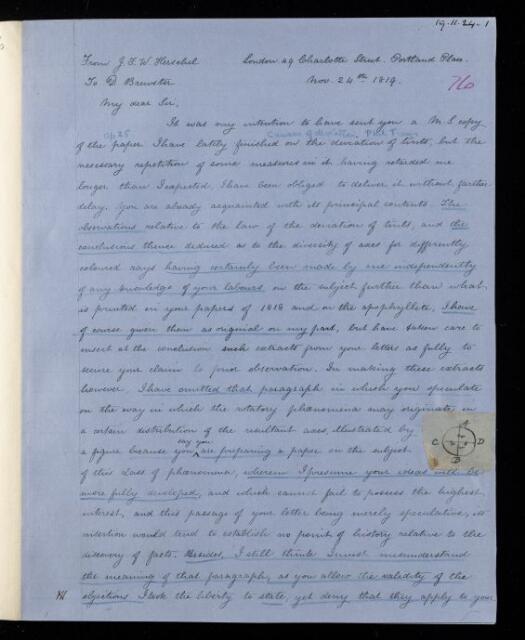 19.11.24-1
From J. F. W. Herschel London 29 Charlotte Street. Portland Place.
To D Brewster Nov. 24th 1819.
760
My dear Sir,
It was my intention to have sent you a M.S. copy
of the paper I have lately finished on the deviation of tints, but the
necessary repetition of some measures in it having retarded me
longer than I expected, I have been obliged to deliver it without further
delay. You are already acquainted with its principal contents. The
observations relative to the law of the deviation of tints, and the
conclusions thence deduced as to the diversity of axes for differently
coloured rays having certainly been made by me independently
of any knowledge of your labours on the subject further than what
is printed in your papers of 1818 and on the apophyllite, I have
of course given them as original on my part, but have taken care to
insert at the conclusion such extracts from your letters as fully to
secure your claim to prior observation. In making these extracts
however, I have omitted that paragraph in which you speculate
on the way in which the rotatory phænomena may originate in
a certain distribution of the resultant axes, illustrated by
a figure because you say you are preparing a paper on the subject
A
C D
B
of this class of phænomena, wherein I presume your ideas will be
more fully developed, and which cannot fail to possess the highest
interest, and this passage of your letter being merely speculative, its
insertion would tend to establish no point of history relative to the
discovery of facts. Besides, I still think I must misunderstand
the meaning of that paragraph, as you allow the validity of the
objections I took the liberty to state, yet deny that they apply to your